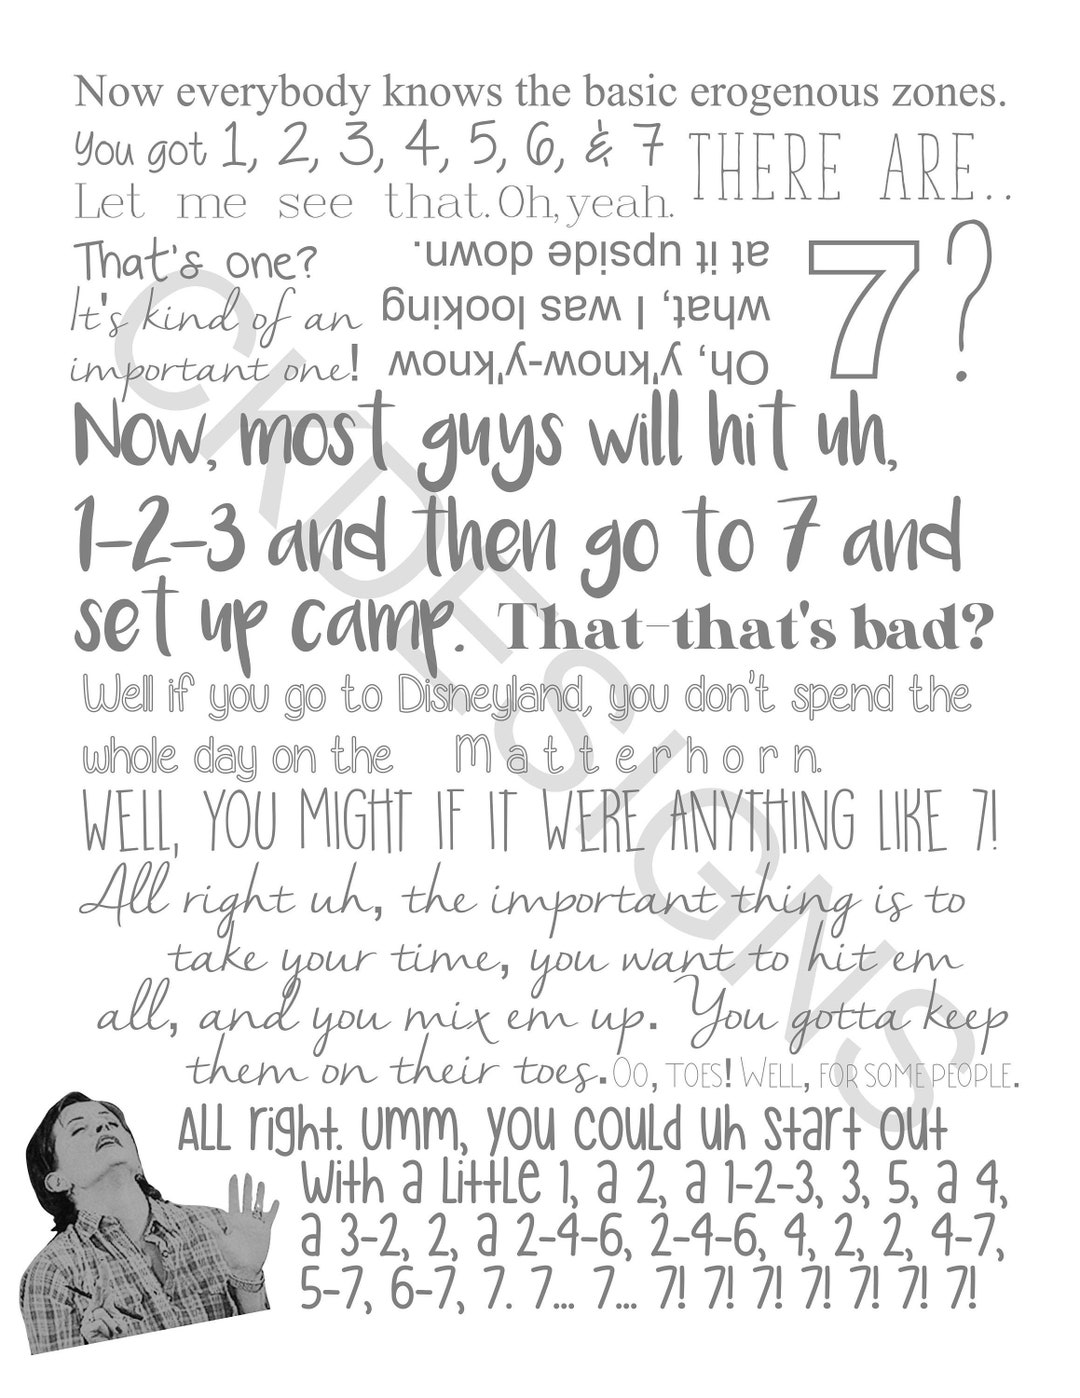 Now everybody knows the basic erogenous zones.
You got 1, 2, 3, 4, 5, 6, & 7
THERE ARE..
Let me see that. Oh, yeah.
7?
That's one?
It's kind of an
important one!
Oh, y'know-y'know
what, I was looking
at it upside down.
Now, most guys will hit uh,
1-2-3 and then go to 7 and
set up camp. That-that's bad?
Well if you go to Disneyland, you don't spend the
whole day on the Matterhorn.
WELL, YOU MIGHT IF IT WERE ANYTHING LIKE 7!
All right uh, the important thing is to
take your time, you want to hit em
all, and you mix em up. You gotta keep
them on their toes. Oo, TOES! WELL, FOR SOME PEOPLE.
All right. Umm, you could uh start out
with a little 1, a 2, a 1-2-3, 3, 5, a 4,
a 3-2, 2, a 2-4-6, 2-4-6, 4, 2, 2, 4-7,
5-7, 6-7, 7. 7... 7... 7! 7! 7! 7! 7! 7! 7!
CKDESIGNS